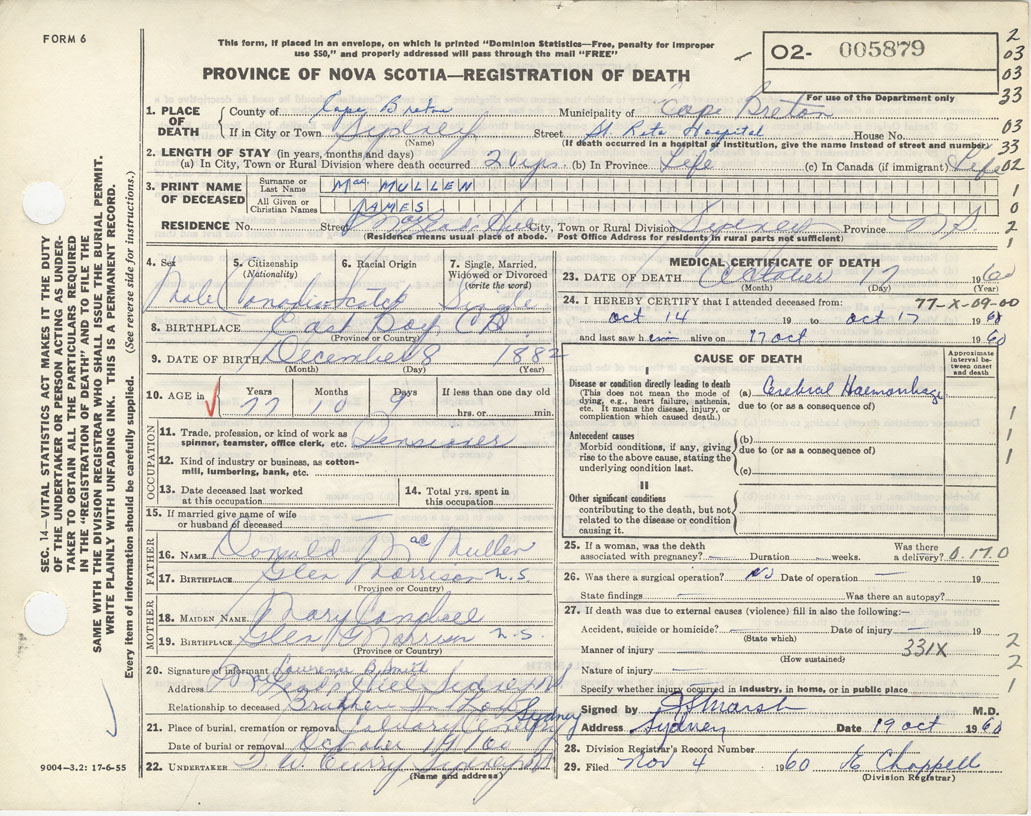 FORM 6
This form, if placed in an envelope, on which is printed "Dominion Statistics—Free, penalty for improper
use $50," and properly addressed will pass through the mail "FREE"
PROVINCE OF NOVA SCOTIA—REGISTRATION OF DEATH
02- 005879
For use of the Department only
2
03
03
33
03
33
02
1. PLACE OF DEATH
County of Cape Breton Municipality of Cape Breton
If in City or Town Sydney Street St Rita Hospital House No.
(Name) (If death occurred in a hospital or institution, give the name instead of street and number)
2. LENGTH OF STAY (in years, months and days)
(a) In City, Town or Rural Division where death occurred 20 yrs. (b) In Province Life (c) In Canada (if immigrant) Life
3. PRINT NAME OF DECEASED
Surname or Last Name Mac MULLEN
All Given or Christian Names JAMES
RESIDENCE No. Street City, Town or Rural Division Sydney Province N S
(Residence means usual place of abode. Post Office Address for residents in rural parts not sufficient)
4. Sex 5. Citizenship (Nationality) 6. Racial Origin 7. Single, Married, Widowed or Divorced (write the word)
Male Canadian Scotch Single
8. BIRTHPLACE East Bay C B
(Province or Country)
9. DATE OF BIRTH December 8 1882
(Month) (Day) (Year)
10. AGE in Years Months Days If less than one day old
77 10 9 hrs. or min.
OCCUPATION
11. Trade, profession, or kind of work as spinner, teamster, office clerk, etc. Pensioner
12. Kind of industry or business, as cotton-mill, lumbering, bank, etc.
13. Date deceased last worked at this occupation
14. Total yrs. spent in this occupation
15. If married give name of wife or husband of deceased —
FATHER
16. NAME Donald MacMullen
17. BIRTHPLACE Glen Morrison N.S.
(Province or Country)
MOTHER
18. MAIDEN NAME Mary Campbell
19. BIRTHPLACE Glen Morrison N.S.
(Province or Country)
20. Signature of informant Lawrence B Smith
Address Sydney NS
Relationship to deceased Brother In Law
21. Place of burial, cremation or removal Calvary Sydney
Date of burial or removal October 19 1960
22. UNDERTAKER T. W. Curry Sydney NS
(Name and address)
MEDICAL CERTIFICATE OF DEATH
23. DATE OF DEATH October 17 1960
(Month) (Day) (Year)
24. I HEREBY CERTIFY that I attended deceased from:
77-X-09-00
oct 14 19 to oct 17 1960
and last saw him alive on 17 oct 1960
CAUSE OF DEATH
Approximate interval between onset and death
I
Disease or condition directly leading to death
(This does not mean the mode of dying, e.g., heart failure, asthenia, etc. It means the disease, injury, or complication which caused death.)
(a) Cerebral Haemorrhage
due to (or as a consequence of)
Antecedent causes
Morbid conditions, if any, giving rise to the above cause, stating the underlying condition last.
(b)
due to (or as a consequence of)
(c)
II
Other significant conditions
contributing to the death, but not related to the disease or condition causing it.
25. If a woman, was the death associated with pregnancy? — Duration weeks. Was there a delivery? 0.17.0
26. Was there a surgical operation? NO Date of operation — 19
State findings — Was there an autopsy?
27. If death was due to external causes (violence) fill in also the following:—
Accident, suicide or homicide? — Date of injury — 19
(State which)
Manner of injury — 331X
(How sustained)
Nature of injury —
Specify whether injury occurred in industry, in home, or in public place
Signed by M.D.
Address Sydney Date 19 oct 1960
28. Division Registrar's Record Number
29. Filed Nov 4 1960 E Chappell
(Division Registrar)
SEC. 14—VITAL STATISTICS ACT MAKES IT THE DUTY
OF THE UNDERTAKER OR PERSON ACTING AS UNDER-
TAKER TO OBTAIN ALL THE PARTICULARS REQUIRED
IN THE "REGISTRATION OF DEATH" AND TO FILE THE
SAME WITH THE DIVISION REGISTRAR WHO SHALL ISSUE THE BURIAL PERMIT.
WRITE PLAINLY WITH UNFADING INK. THIS IS A PERMANENT RECORD.
Every item of information should be carefully supplied. (See reverse side for instructions.)
9004—3.2: 17-6-55